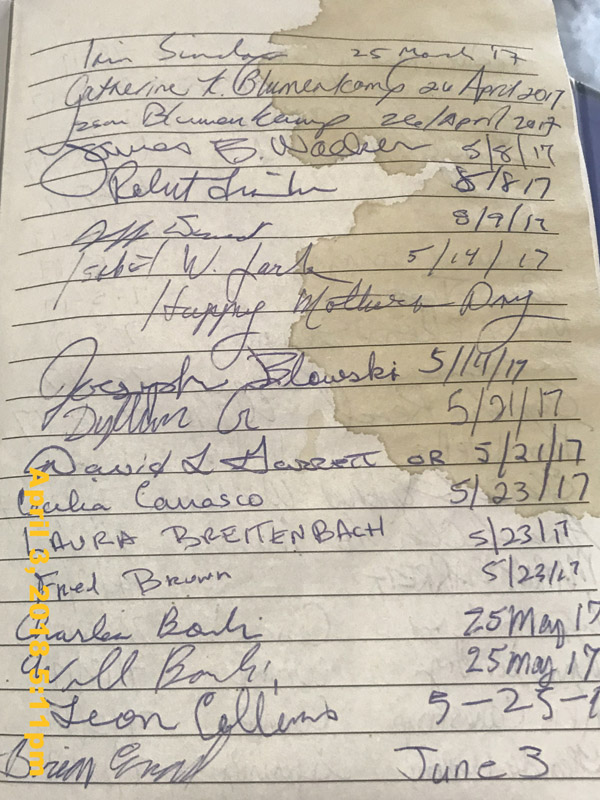 Iain Sinclair 25 March '17
Catherine L. Blumenkamp 26 April 2017
Jason Blumenkamp 26 April 2017
James B. 5/8/17
Robert 5/8/17
8/9/17
Isabel W. 5/14/17
Happy Mothers Day
Joseph 5/17/17
Dyllan 5/21/17
David L Garrett OR 5/21/17
Carrasco 5/23/17
LAURA BREITENBACH 5/23/17
Fred Brown 5/23/17
Charles Banks 25 May 17
Will Banks 25 May 17
Leon Collems 5-25-1
Brian June 3
April 3, 2018 5:11pm